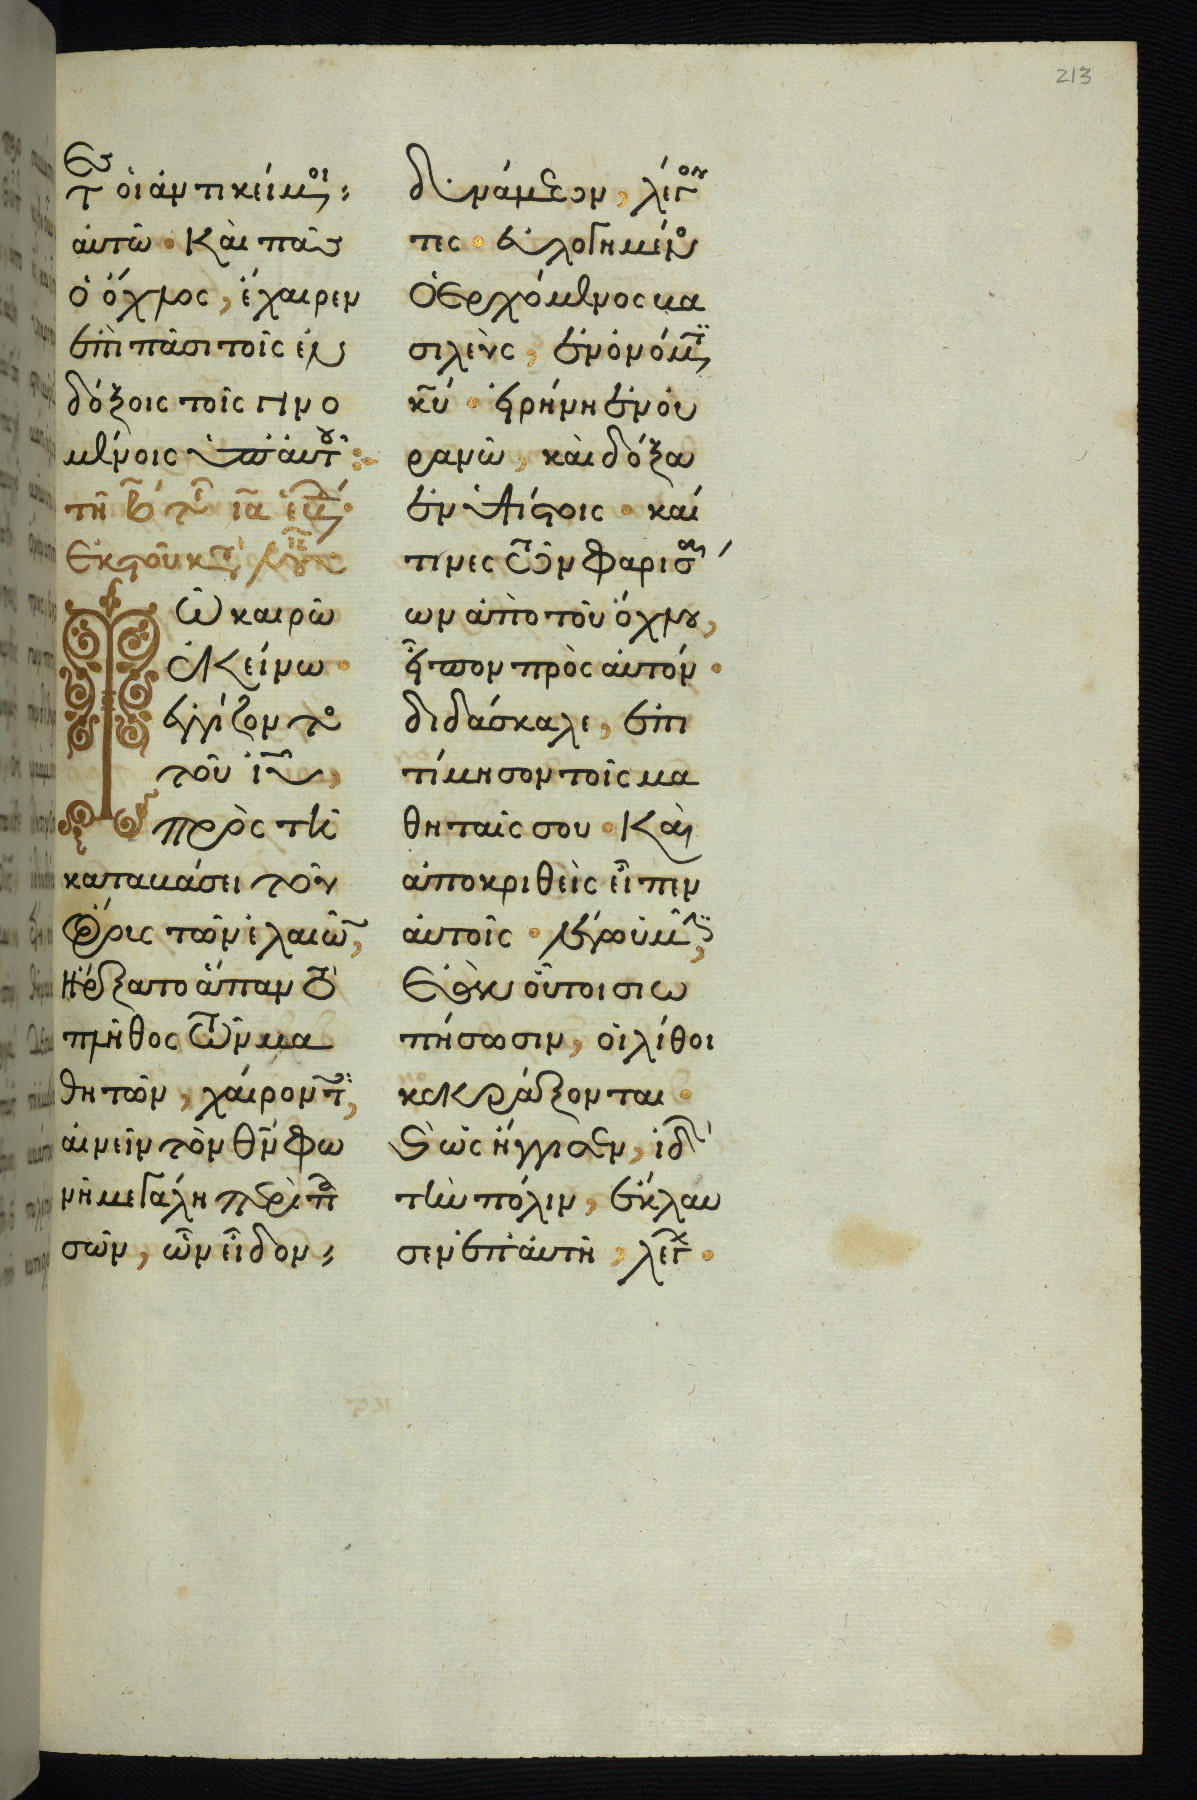 213
ετοι ἀντικείμενοι
αὐτῶ. Καὶ πᾶς
ὁ ὄχλος, ἔχαιρεν
ἐπὶ πᾶσι τοῖς ἐν
δόξοις τοῖς γινο
μένοις ὑπ' αὐτοῦ:
τῆ β τῆς ια ἑβδ
Ἐκ τοῦ κατὰ Λουκ
Τῶ καιρῶ
ἐκείνω.
ἐγγίζοντος
τοῦ ιυ,
πρὸς τῆ
καταβάσει τοῦ
ὄρους τῶν ἐλαιῶν,
ἤρξατο ἅπαν τὸ
πλῆθος τῶν μα
θητῶν, χαίροντες,
αἰνεῖν τὸν θν φω
νῆ μεγάλη περὶ πα
σῶν, ὧν εἶδον
δυνάμεων, λέγον
τες. εὐλογημένος
ὁ ἐρχόμενος βα
σιλεὺς, ἐν ὀνόματι
κυ. εἰρήνη ἐν οὐ
ρανῶ, καὶ δόξα
ἐν ὑψίστοις. καί
τινες τῶν φαρισαί
ων ἀπὸ τοῦ ὄχλου,
εἶπον πρὸς αὐτόν.
διδάσκαλε, ἐπι
τίμησον τοῖς μα
θηταῖς σου. Καὶ
ἀποκριθεὶς εἶπεν
αὐτοῖς. λέγω ὑμῖν,
ἐὰν οὗτοι σιω
πήσωσιν, οἱ λίθοι
κεκράξονται.
καὶ ὡς ἤγγισεν, ἰδὼν
τὴν πόλιν, ἔκλαυ
σεν ἐπ' αὐτῆ, λέγων.